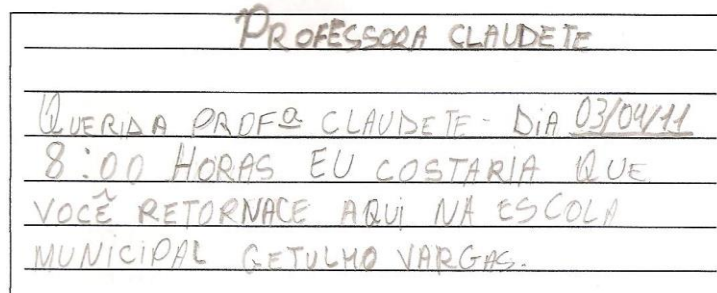 PROFESSORA CLAUDETE
QUERIDA PROFª CLAUDETE - DIA 03/04/11
8:00 HORAS EU COSTARIA QUE
VOCÊ RETORNACE AQUI NA ESCOLA
MUNICIPAL GETULHO VARGAS.